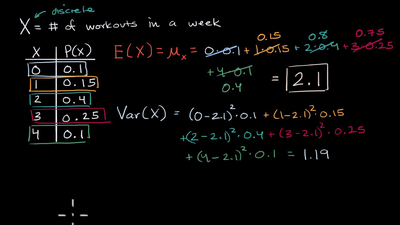 discrete
X = # of workouts in a week
0.15 0.8 0.75
X P(X) E(X) = μx = 0·0.1 + 1·0.15 + 2·0.4 + 3·0.25
0 0.1 + 4·0.1 = 2.1
1 0.15 0.4
2 0.4 Var(X) = (0-2.1)²·0.1 + (1-2.1)²·0.15
3 0.25 +(2-2.1)²·0.4 + (3-2.1)²·0.25
4 0.1 +(4-2.1)²·0.1 = 1.19